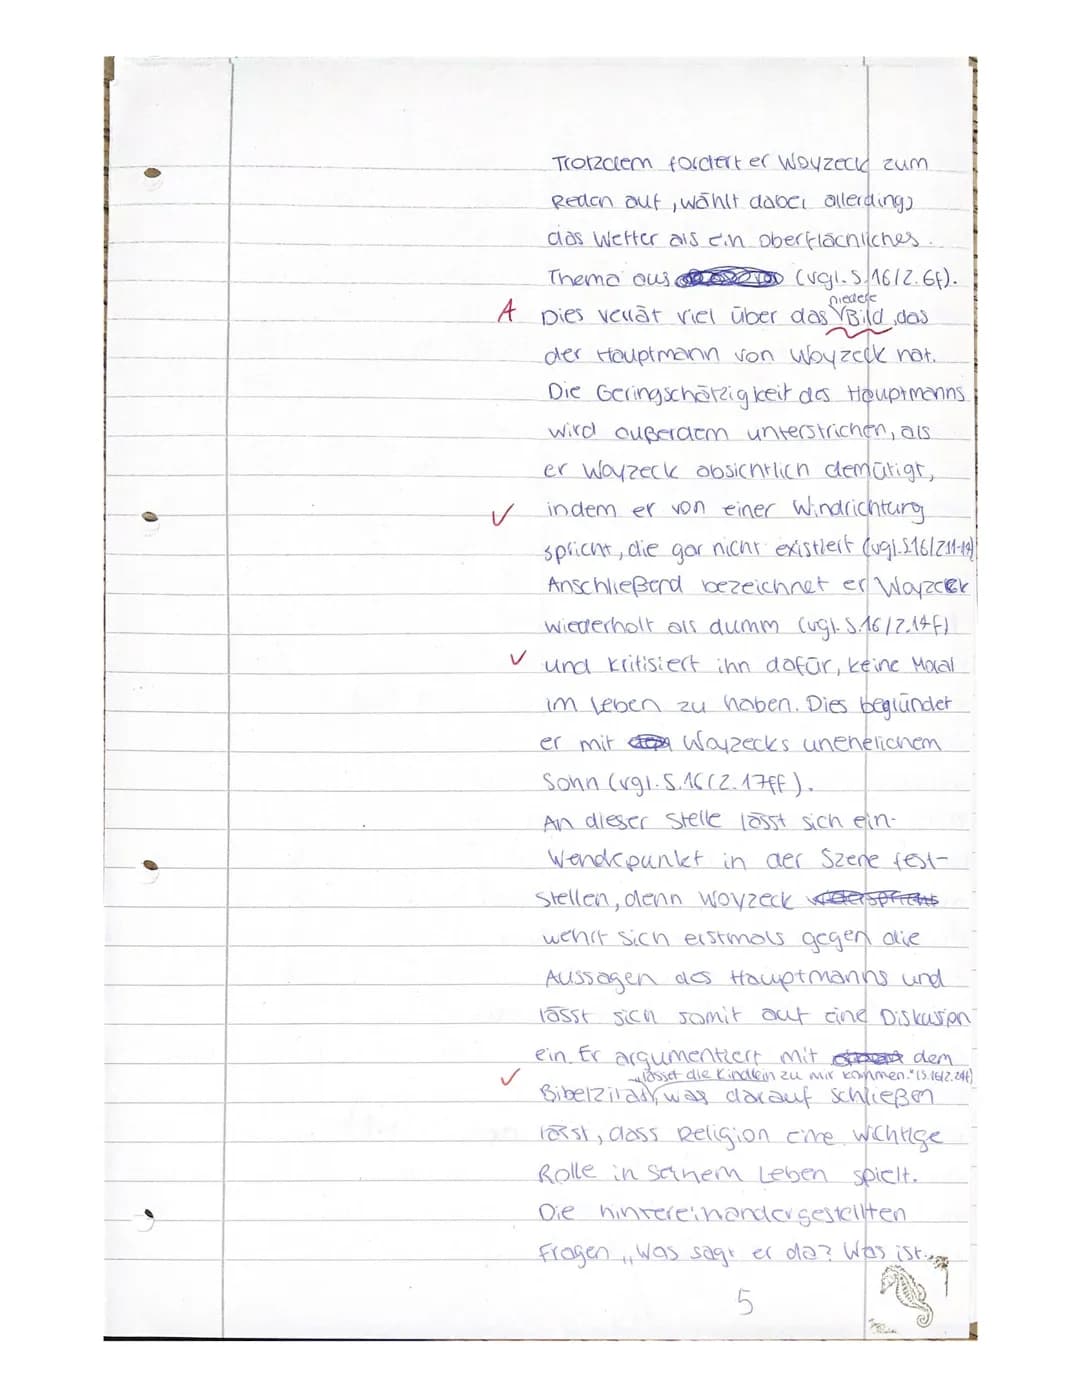 Trotzdem fordert er Woyzeck zum
Reden auf, wählt dabei allerdings
das Wetter als ein oberflächliches
Thema aus (vgl. S. 16/Z. 6f).
niedere
A Dies verrät viel über das Bild, das
der Hauptmann von Woyzeck hat.
Die Geringschätzigkeit des Hauptmanns
wird außerdem unterstrichen, als
er Woyzeck absichtlich demütigt,
✓ indem er von einer Windrichtung
spricht, die gar nicht existiert (vgl. S.16/Z.11-14)
Anschließend bezeichnet er Woyzeck
wiederholt als dumm (vgl. S.16/Z.14f)
✓ und kritisiert ihn dafür, keine Moral
im Leben zu haben. Dies begründet
er mit Woyzecks unehelichem
Sohn (vgl. S.16/Z.17ff).
An dieser Stelle lässt sich ein
Wendepunkt in der Szene fest-
stellen, denn Woyzeck widerspricht
wehrt sich erstmals gegen die
Aussagen des Hauptmanns und
lässt sich somit auf eine Diskusion
ein. Er argumentiert mit dem
„lasset die Kindlein zu mir kommen." (S.16/Z.24f)
✓ Bibelzitat, was darauf schließen
lässt, dass Religion eine wichtige
Rolle in seinem Leben spielt.
Die hintereinandergestellten
Fragen „Was sagt er da? Was ist
5